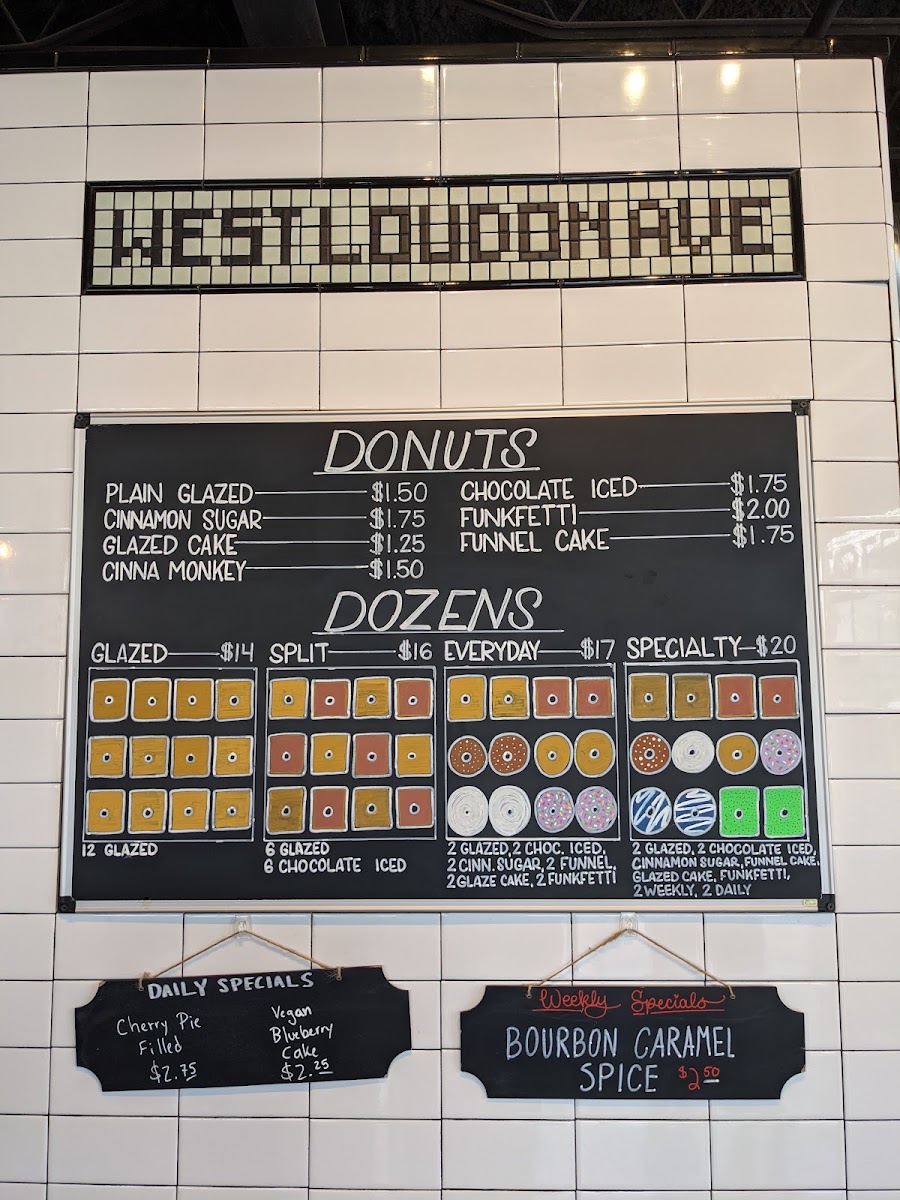 WEST LOUDON AVE
DONUTS
PLAIN GLAZED $1.50
CINNAMON SUGAR $1.75
GLAZED CAKE $1.25
CINNA MONKEY $1.50
CHOCOLATE ICED $1.75
FUNKFETTI $2.00
FUNNEL CAKE $1.75
DOZENS
GLAZED $14
12 GLAZED
SPLIT $16
6 GLAZED
6 CHOCOLATE ICED
EVERYDAY $17
2 GLAZED, 2 CHOC. ICED,
2 CINN. SUGAR, 2 FUNNEL,
2 GLAZE CAKE, 2 FUNKFETTI
SPECIALTY $20
2 GLAZED, 2 CHOCOLATE ICED,
CINNAMON SUGAR, FUNNEL CAKE,
GLAZED CAKE, FUNKFETTI,
2 WEEKLY, 2 DAILY
DAILY SPECIALS
Cherry Pie
Filled
$2.75
Vegan
Blueberry
Cake
$2.25
Weekly Specials
BOURBON CARAMEL
SPICE $2.50